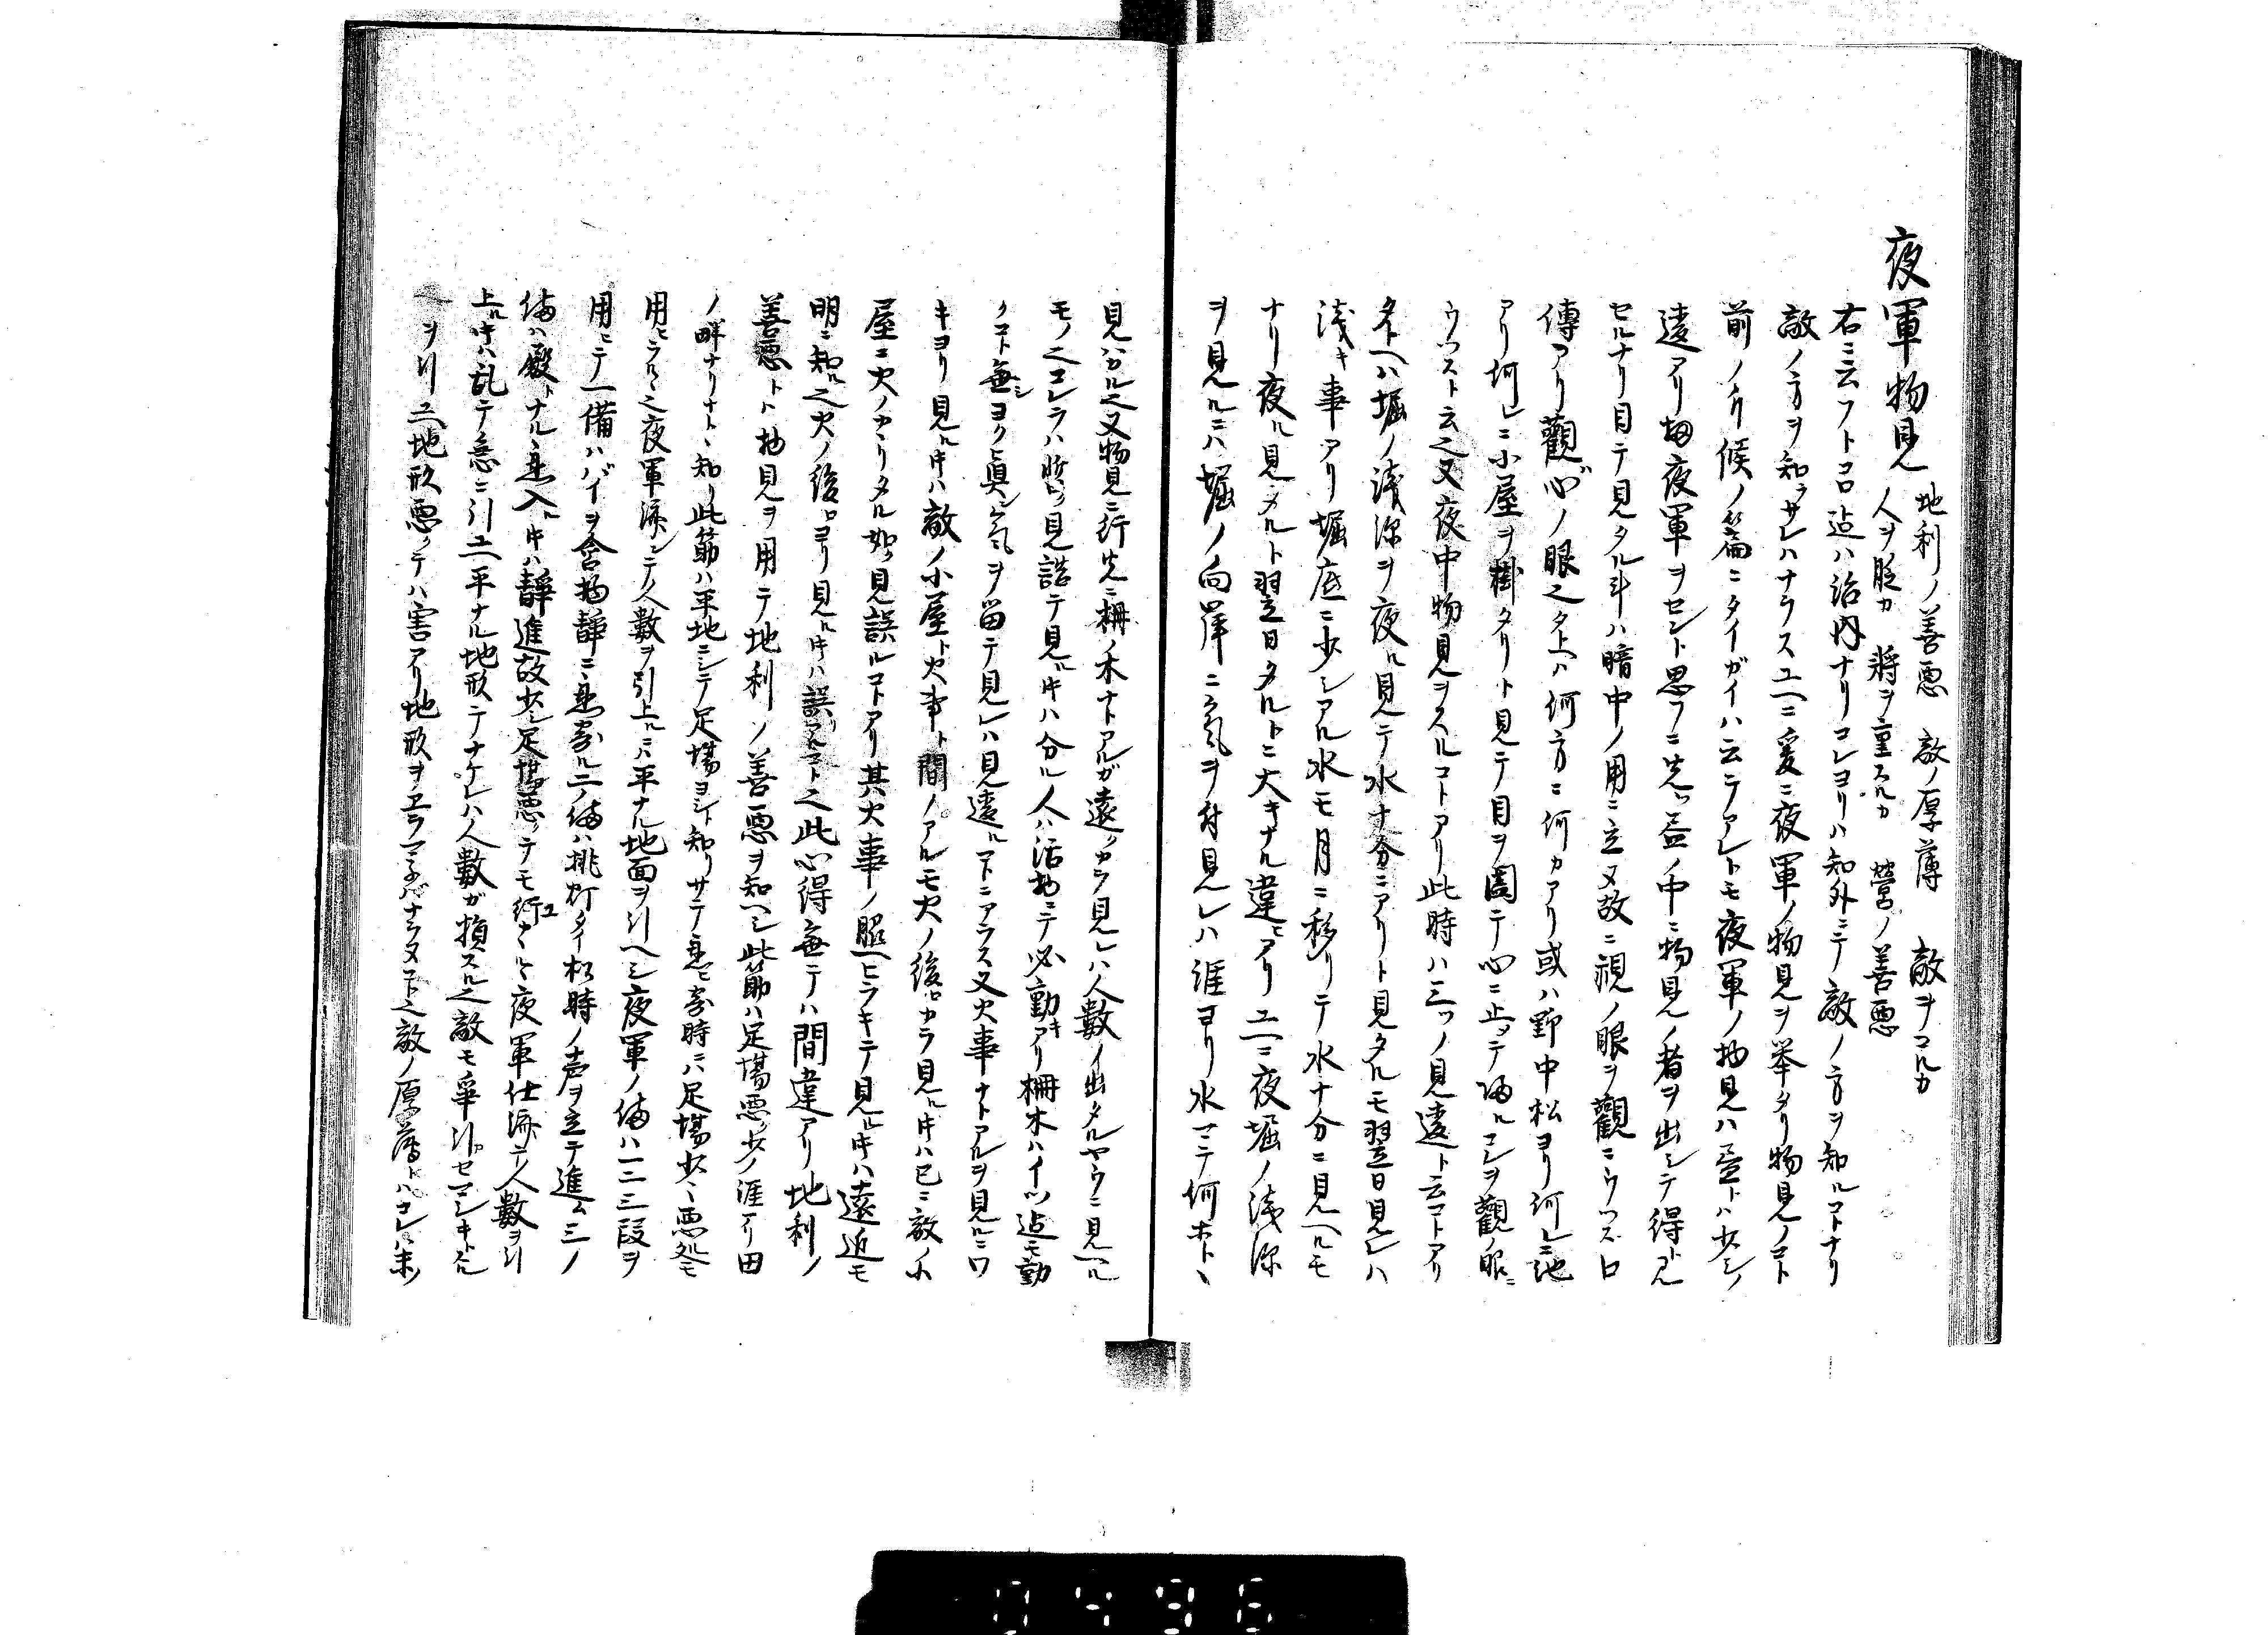 夜軍物見
地利ノ善悪 敵ノ厚薄 敵ヲコルカ
人ヲ貶カ 將ヲ重スルカ 營ノ善悪
右ニ云フトコロ迠ハ治内ナリコレヨリハ知外ニテ敵ノ方ヲ知ルコトナリ
敵ノ方ヲ知ラサレハナラスユヘニ爰ニ夜軍ノ物見ヲ挙タリ物見ノコト
前ノ候ノ篇ニタイガイハ云テアレトモ夜軍ノ物見ハ昼トハ少シ
違アリ夜軍ヲセント思フニ先ツ昼ノ中ニ物見ノ者ヲ出シテ得ト見
セルナリ目テ見タル斗ハ暗中ノ用ニ立ヌ故ニ視ノ眼ヲ觀ニウツス口
傳アリ觀ハ心ノ眼也タトヘハ何方ニ何カアリ或ハ野中松ヨリ何レニ池
アリ何レニ小屋ヲ掛タリト見テ目ヲ閉テ心ニ止メテ帰ルコレヲ觀ノ眼ニ
ウツスト云也又夜中物見ヲスルコトアリ此時ハ三ツノ見違ト云コトアリ
タトヘハ堀ノ浅深ヲ夜ル見テ水十分ニアリト見タルモ翌日見レハ
浅キ事アリ堀底ニ少シアル水モ月ニ移リテ水十分ニ見ヘルモ
ナリ夜ル見タルト翌日タルトニ大キナル違ヒアリユヘニ夜堀ノ浅深
ヲ見ルニハ堀ノ向岸ニ氣ヲ付見レハ涯ヨリ水マテ何ホト
見ハカル也又物見ニ行先ニ柵ノ木ナトアルガ遠クカラ見レハ人數ノ出タルヤウニ見ヘル
モノ也コレラハ見詰テ見ル時ハ分ル人ハ活物ニテ必動キアリ柵木ハイツ迠モ動
クコト無シヨク眞ニ氣ヲ留テ見レハ見違ルコトニアラス又火事ナトアルヲ見ルニワ
キヨリ見ル時ハ敵ノ小屋ト火事ト間ノアルモ火ノ後ロカラ見ル時ハ已ニ敵ノ小
屋ニ火ノカヽリタル如ク見誤ルコトアリ其火事ノ照ヒラキテ見ル時ハ遠近モ
明ニ知ル也火ノ後ロヨリ見ル時ハ誤ルコト也此心得無テハ間違アリ地利ノ
善悪トハ物見ヲ用テ地利ノ善悪ヲ知ヘシ此筋ハ足場悪ク少ノ涯アリ田
ノ畔ナリナト知リ此筋ハ平地ニシテ足場ヨシト知リサテ忍ヒ寄時ニハ足場少々悪処モ
用ヒラルヽ也夜軍濟シテ人數ヲ引上ルニハ平ナル地面ヲ引ヘシ夜軍ノ備ハ一二三段ヲ
用ヒテ一備ハバイヲ含物静ニ忍寄ル二ノ備ハ挑灯タイ松時ノ声ヲ立テ進ム三ノ
備ハ殿トナル忍入ル時ハ静進故少シ足場悪クテモ行カルヽ夜軍仕濟テ人數ヲ引
上ル時ハ乱テ急ニ引ユヘ平ナル地形テナケレハ人數ガ損スル也敵モ
ヲ引ユヘ地形悪クテハ害アリ地形ヲエラマ子バナラヌコト也敵ノ厚薄トハコレハ末ノ